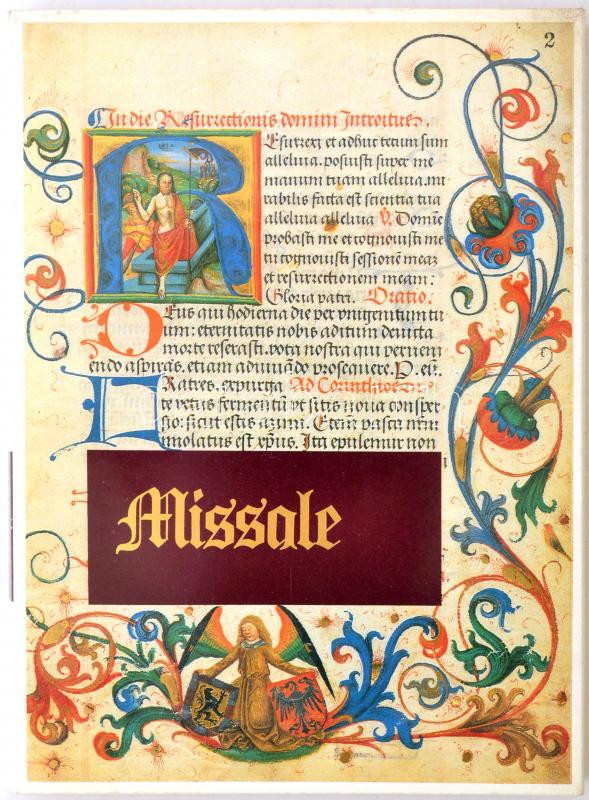 2
In die Resurrectionis domini Introitus.
REsurrexi et adhuc tecum sum
alleluia. posuisti super me
manum tuam alleluia. mi
rabilis facta est scientia tua
alleluia alleluia V. Domīe
probasti me et cognouisti me
tu cognouisti sessionē meaz
et resurrectionem meam:
Gloria patri. Oratio.
DEus qui hodierna die per unigenitum tu
um: eternitatis nobis aditum deuicta
morte reserasti. vota nostra qui preueni
endo aspiras. etiam adiuuādo prosequere. P. eū.
FRatres. expurga Ad Corinthios
te vetus fermentū vt sitis noua consper
sio: sicut estis azimi. Etem pasca nrm
immolatus est xpus. Ita epulemur non
Missale